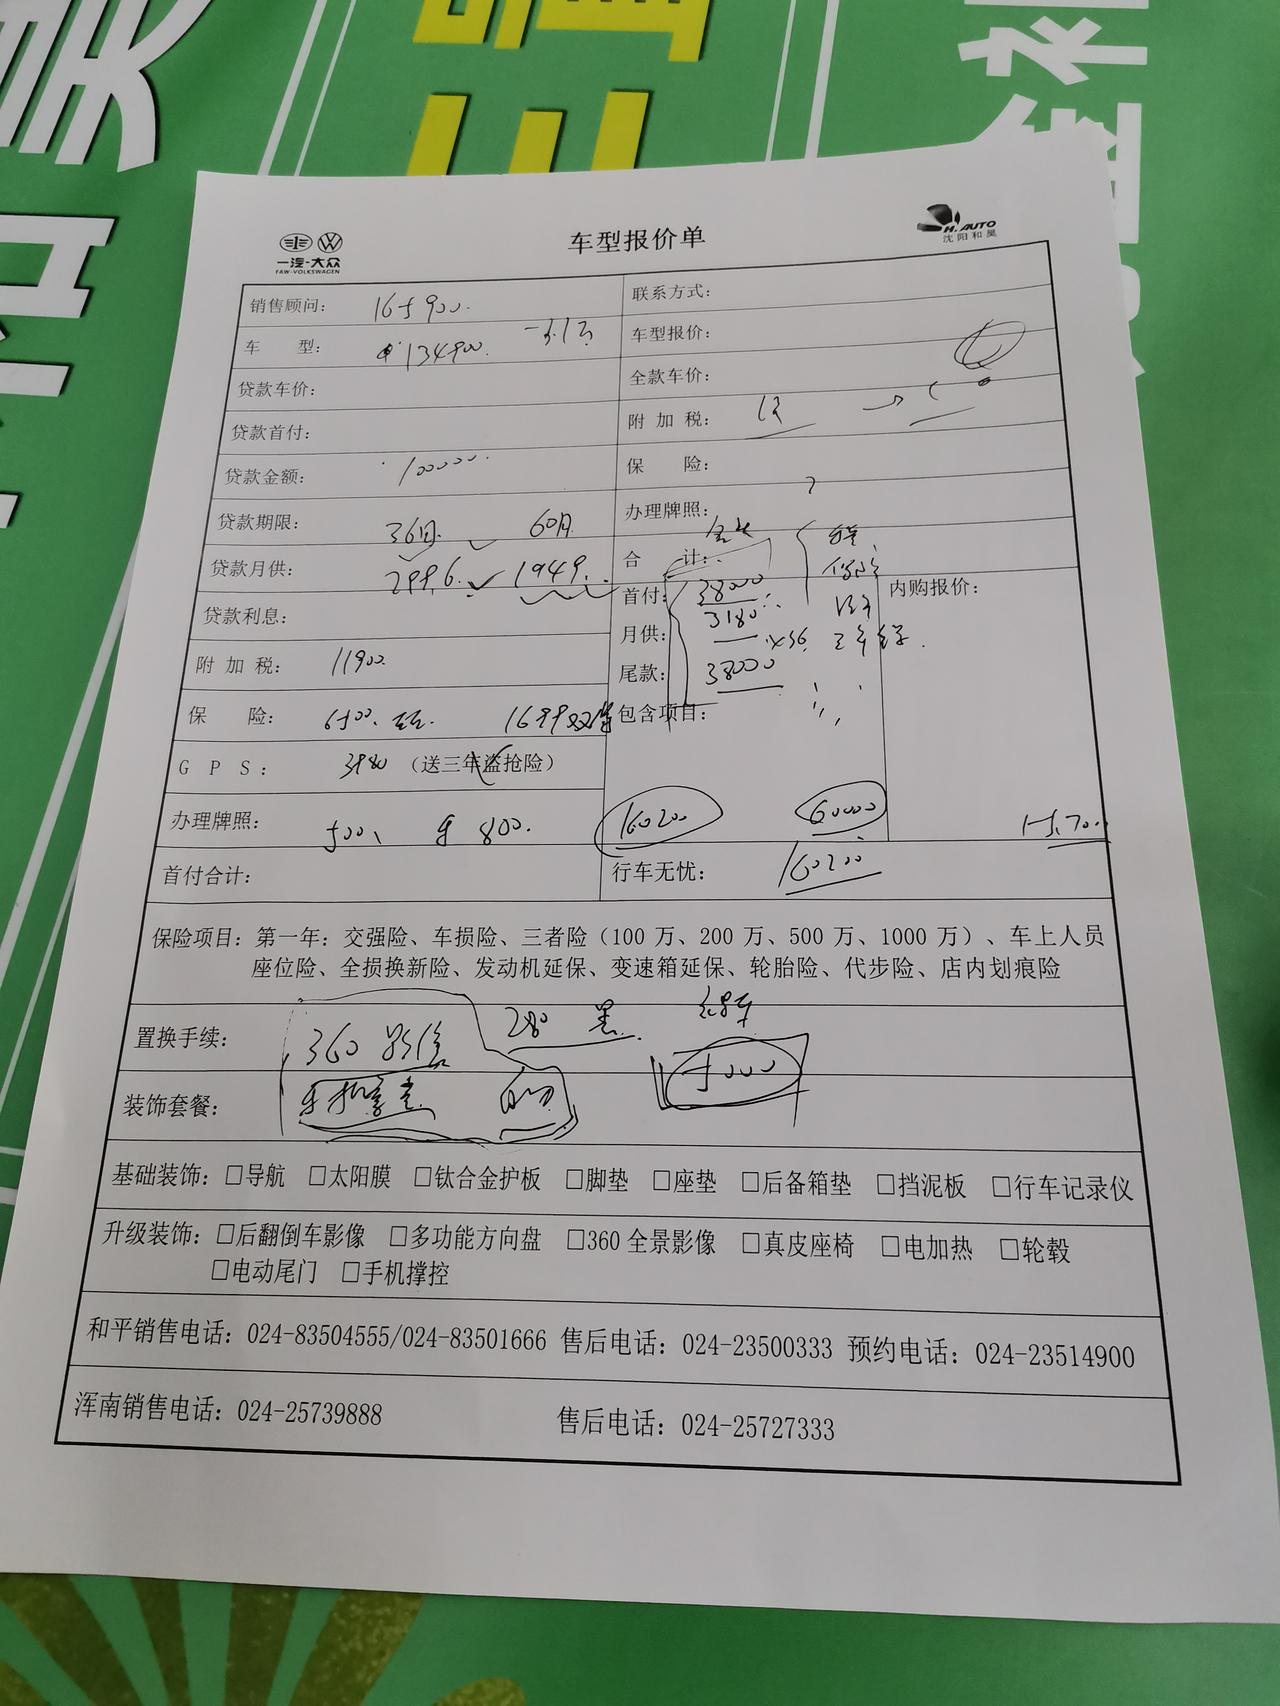 一汽-大众
FAW-VOLKSWAGEN
车型报价单
H.AUTO
沈阳和昊
销售顾问: 165900
联系方式:
车 型: 134900 -3.1万
车型报价:
贷款车价:
全款车价:
贷款首付:
附 加 税:
贷款金额: 100000
保 险:
贷款期限: 36月 60月
办理牌照:
贷款月供: 2996 1949
合 计:
贷款利息:
首付: 38000
内购报价:
月供: 3180 x36
附 加 税: 11900
尾款: 38000
保 险: 6500 1699
包含项目:
G P S: 3980 (送三年盗抢险)
办理牌照: 500 800
160200 60000
首付合计:
行车无忧: 160200
保险项目: 第一年: 交强险、车损险、三者险 (100 万、200 万、500 万、1000 万) 、车上人员
座位险、全损换新险、发动机延保、变速箱延保、轮胎险、代步险、店内划痕险
置换手续: 360 影像 280 黑
装饰套餐: 5000
基础装饰: □导航 □太阳膜 □钛合金护板 □脚垫 □座垫 □后备箱垫 □挡泥板 □行车记录仪
升级装饰: □后翻倒车影像 □多功能方向盘 □360 全景影像 □真皮座椅 □电加热 □轮毂
□电动尾门 □手机撑控
和平销售电话: 024-83504555/024-83501666 售后电话: 024-23500333 预约电话: 024-23514900
浑南销售电话: 024-25739888 售后电话: 024-25727333